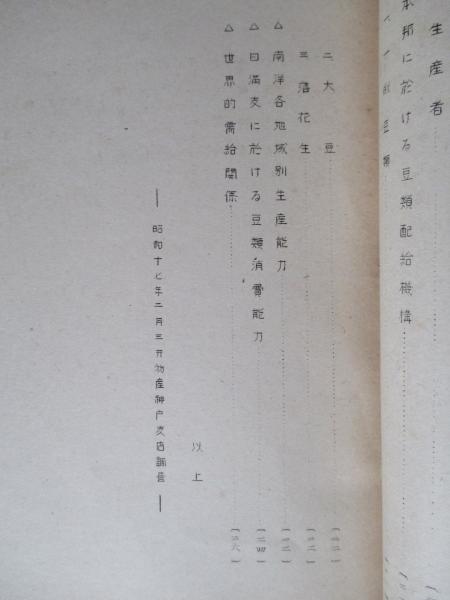 生産者
本邦に於ける豆類配給機構
二 大豆
三 落花生
△ 南洋各地域別生産能力
△ 日満支に於ける豆類消費能力
△ 世界的需給関係
以上
昭和十七年二月三井物産神戸支店調査